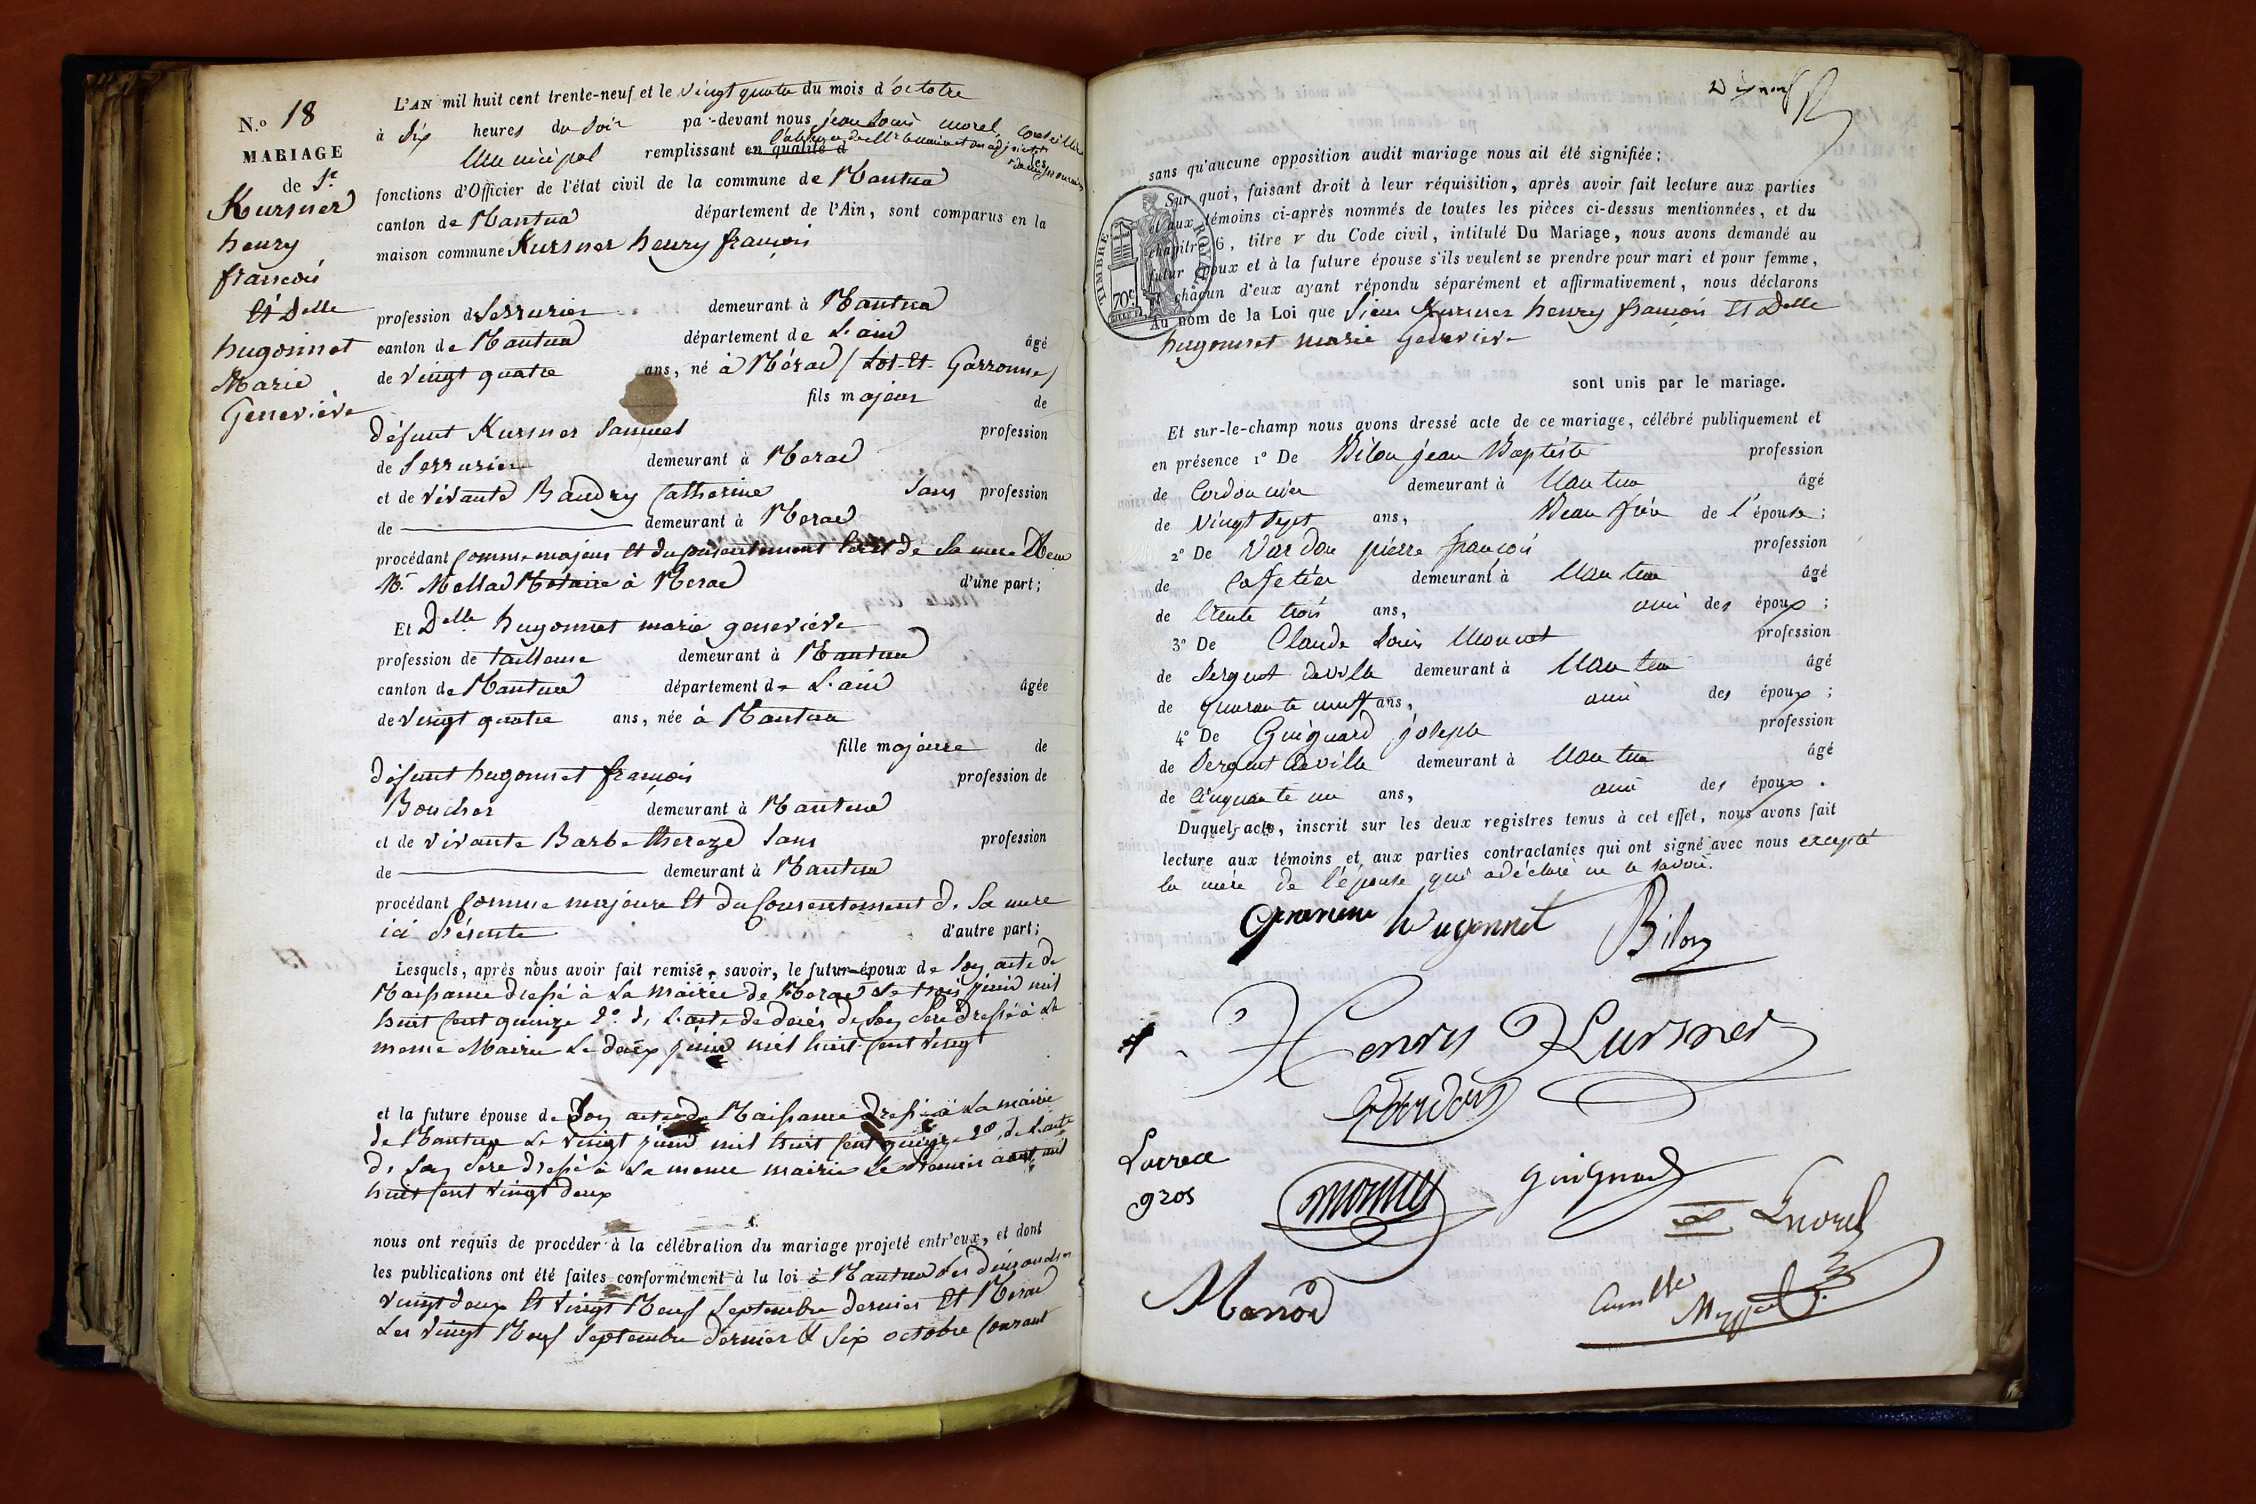 N.º 18
MARIAGE
de Sr
Kursner
henry
françois
Et Delle
hugonnet
Marie
Geneviève
L'AN mil huit cent trente-neuf et le vingt quatre du mois d'octobre
à Six heures du Soir pa-devant nous jean Louis morel, Conseiller
Municipal remplissant en qualité d les
fonctions d'Officier de l'état civil de la commune de Nantua
canton de Nantua département de l'Ain, sont comparus en la
maison commune Kursner henry françois
profession de Serrurier demeurant à Nantua
canton de Nantua département de L'ain âgé
de vingt quatre ans, né à Nérac / Lot-Et-Garronne /
fils majeur de
défunt Kursner Samuel profession
de Serrurier demeurant à Nerac
et de vivante Baudry Catherine Sans profession
de demeurant à Nerac
procédant Comme majeur Et du Consentement Ecrit de Sa mere Reçu
Mr. Mellac Notaire à Nerac d'une part;
Et Delle hugonnet marie geneviève
profession de tailleuse demeurant à Nantua
canton de Nantua département de L'ain âgée
de vingt quatre ans, née à Nantua
fille majeure de
défunt hugonnet françois profession de
Boucher demeurant à Nantua
et de vivante Barbe thereze Sans profession
de demeurant à Nantua
procédant Comme majeure Et du Consentement de Sa mere
ici présente d'autre part;
Lesquels, après nous avoir fait remise, savoir, le futur époux de Son acte de
Naissance dressé à La Mairie de Nerac Le trois juin mil
huit Cent quinze 2º de L'acte de décès de Son Père dressé à La
meme Mairie Le deux juin mil huit Cent vingt
et la future épouse de Son acte de Naissance dressé à La mairie
de Nantua Le vingt juin mil huit Cent quinze 2º de L'acte
de Son Père dressé à La meme mairie Le premier aout mil
huit Cent vingt deux
nous ont requis de procéder à la célébration du mariage projeté entr'eux, et dont
les publications ont été faites conformément à la loi à Nantua Les dimanches
vingt deux Et vingt Neuf Septembre dernier Et Nerac
Les vingt Neuf Septembre dernier & Six octobre Courant
Dix neuf
sans qu'aucune opposition audit mariage nous ait été signifiée;
Sur quoi, faisant droit à leur réquisition, après avoir fait lecture aux parties
et aux témoins ci-après nommés de toutes les pièces ci-dessus mentionnées, et du
chapitre 6, titre v du Code civil, intitulé Du Mariage, nous avons demandé au
futur époux et à la future épouse s'ils veulent se prendre pour mari et pour femme,
et chacun d'eux ayant répondu séparément et affirmativement, nous déclarons
Au nom de la Loi que Sieur Kursner henry françois Et Delle
hugonnet marie geneviève
sont unis par le mariage.
TIMBRE ROYAL
70c
Et sur-le-champ nous avons dressé acte de ce mariage, célébré publiquement et
en présence 1º De Bilon jean Baptiste profession
de Cordonnier demeurant à Nantua âgé
de vingt Sept ans, Beau frère de l'épouse;
2º De Vardon pierre françois profession
de Cafetier demeurant à Nantua âgé
de trente trois ans, ami des époux;
3º De Claude Louis Monnet profession
de Sergent de ville demeurant à Nantua âgé
de quarante neuf ans, ami des époux;
4º De Guignard joseph profession
de Sergent de ville demeurant à Nantua âgé
de Cinquante un ans, ami des époux.
Duquel acte, inscrit sur les deux registres tenus à cet effet, nous avons fait
lecture aux témoins et aux parties contractantes qui ont signé avec nous excepté
la mère de l'épouse qui a déclaré ne le Savoir.
hugonnet Bilon
Henry Kursner
Vardon
gros
monnet guignard
L morel
Manôd
Camille